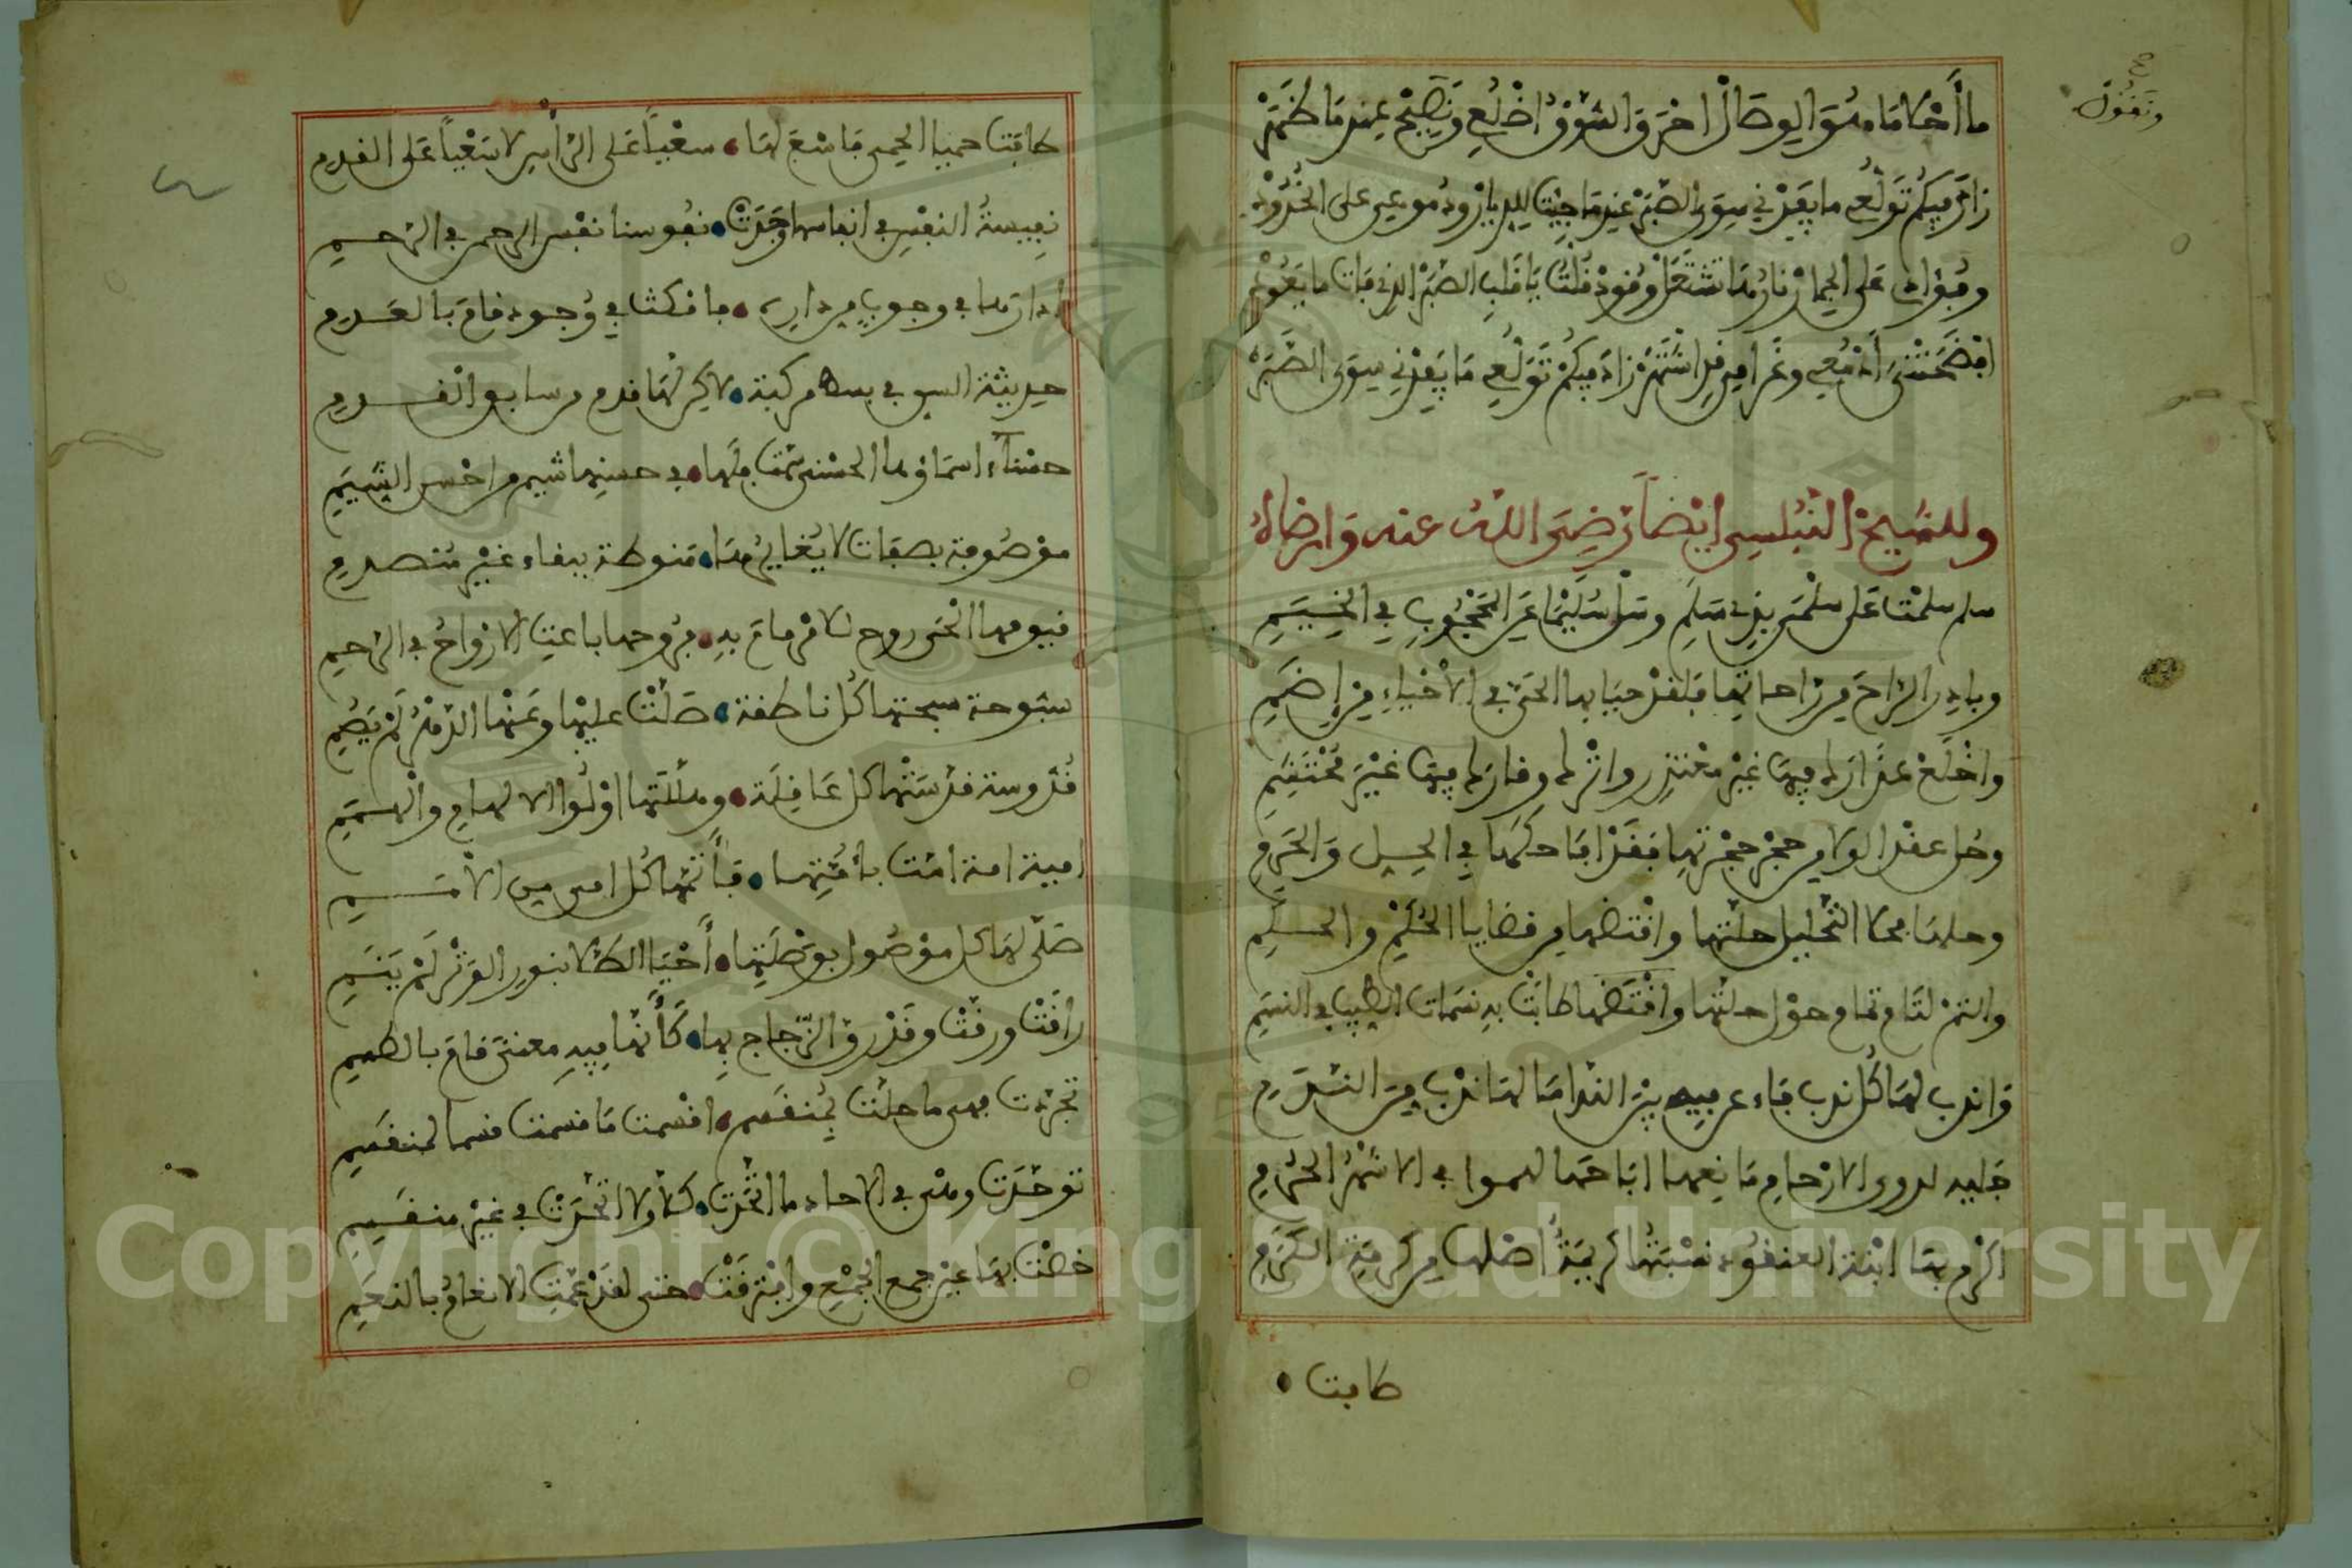 ونقول
ما أحلا ما منو الوصال احرق الشوق اضلعي ونصبح عند ما خمر
زاد فيكم تولعي ما يفدني سوى الصبر عند ما جيت للديار زود موعي على الخدود
وفؤادي على الجمار نار ما تشتعل وقود قلت يا قلب الصبر الذي فات ما يعود
افضحتني أدمعي وغرامي قد اشتهر زاد فيكم تولعي ما يفدني سوى الصبر
وللشيخ النبلسي ايضا رضى الله عنه وارضاه
سلم سلمت على سلمى بذي سلم وسل سليما عن المحجوب في الخيم
وبادر الراح من راحاتها فلقد حيا بها الحي في الأحياء من إضم
واخلع عذارك فيها غير معتذر واترك وقارك فيها غير محتشم
وحل عقد الولا من حجر حجرتها فقد اباحكها في الحل والحرم
وحلها بحلا التحليل حلتها واقتضها من قضايا الحكم والحكم
والتم لثام تمام حول حلتها واقتضها طابت به نسمات الطيب والنسم
واندب لها كل ندب جاء عن فيه بين الندامى لها ندب من الندم
حليه لدوى الارحام مانعها اباحها لهموا في الاشهر الحرم
اكرم بها ابنة العنقود نسبتها كريمة أصلها من كرمة الكرم
طابت
طابت حميا الحمى فاسع لها سعيا على الرأس لا سعيا على القدم
نفيسة النفس في انفاسها وجدت نفوسنا نفس الرحمن في الرحم
دارها في وجوب من دايره جا فكت في وجود قام بالعدم
حديثة السن في بسط مركبة لاكن لها قدم من سابق القدم
حسناء اسماؤها الحسنى سمت فلها في حسنها شيم من احسن الشيم
موصوفة بصفات لا يغايرها منوطة ببقاء غير منصدم
فيومها الحي روح الامر قام به من روحها باعث الارواح في الرحم
سبوحة سبحتها كل ناطقة صلت عليها وعنها الدهر لم يصم
قدوسة قدستها كل عاقلة وهللتها اولوا الالهام والهمم
امينة امنة امت بامتها فأمتها كل امى من الأمم
صلى لها كل موصول بوصلتها أحيا الطلا بنور الوتر لم ينم
راقت ورقت وقد رق الزجاج بها كأنها فيه معنى قام بالكلم
تجزءت فهى ما حلت بمنقسم اقسمت ما قسمت قسما لمنقسم
توحدت وهى في الاحاد ما اتحدت كلا ولا اتحدت في غير منقسم
خصت بها عين جمع الجمع وافترقت حتى لقد عمت الانعام بالنعم